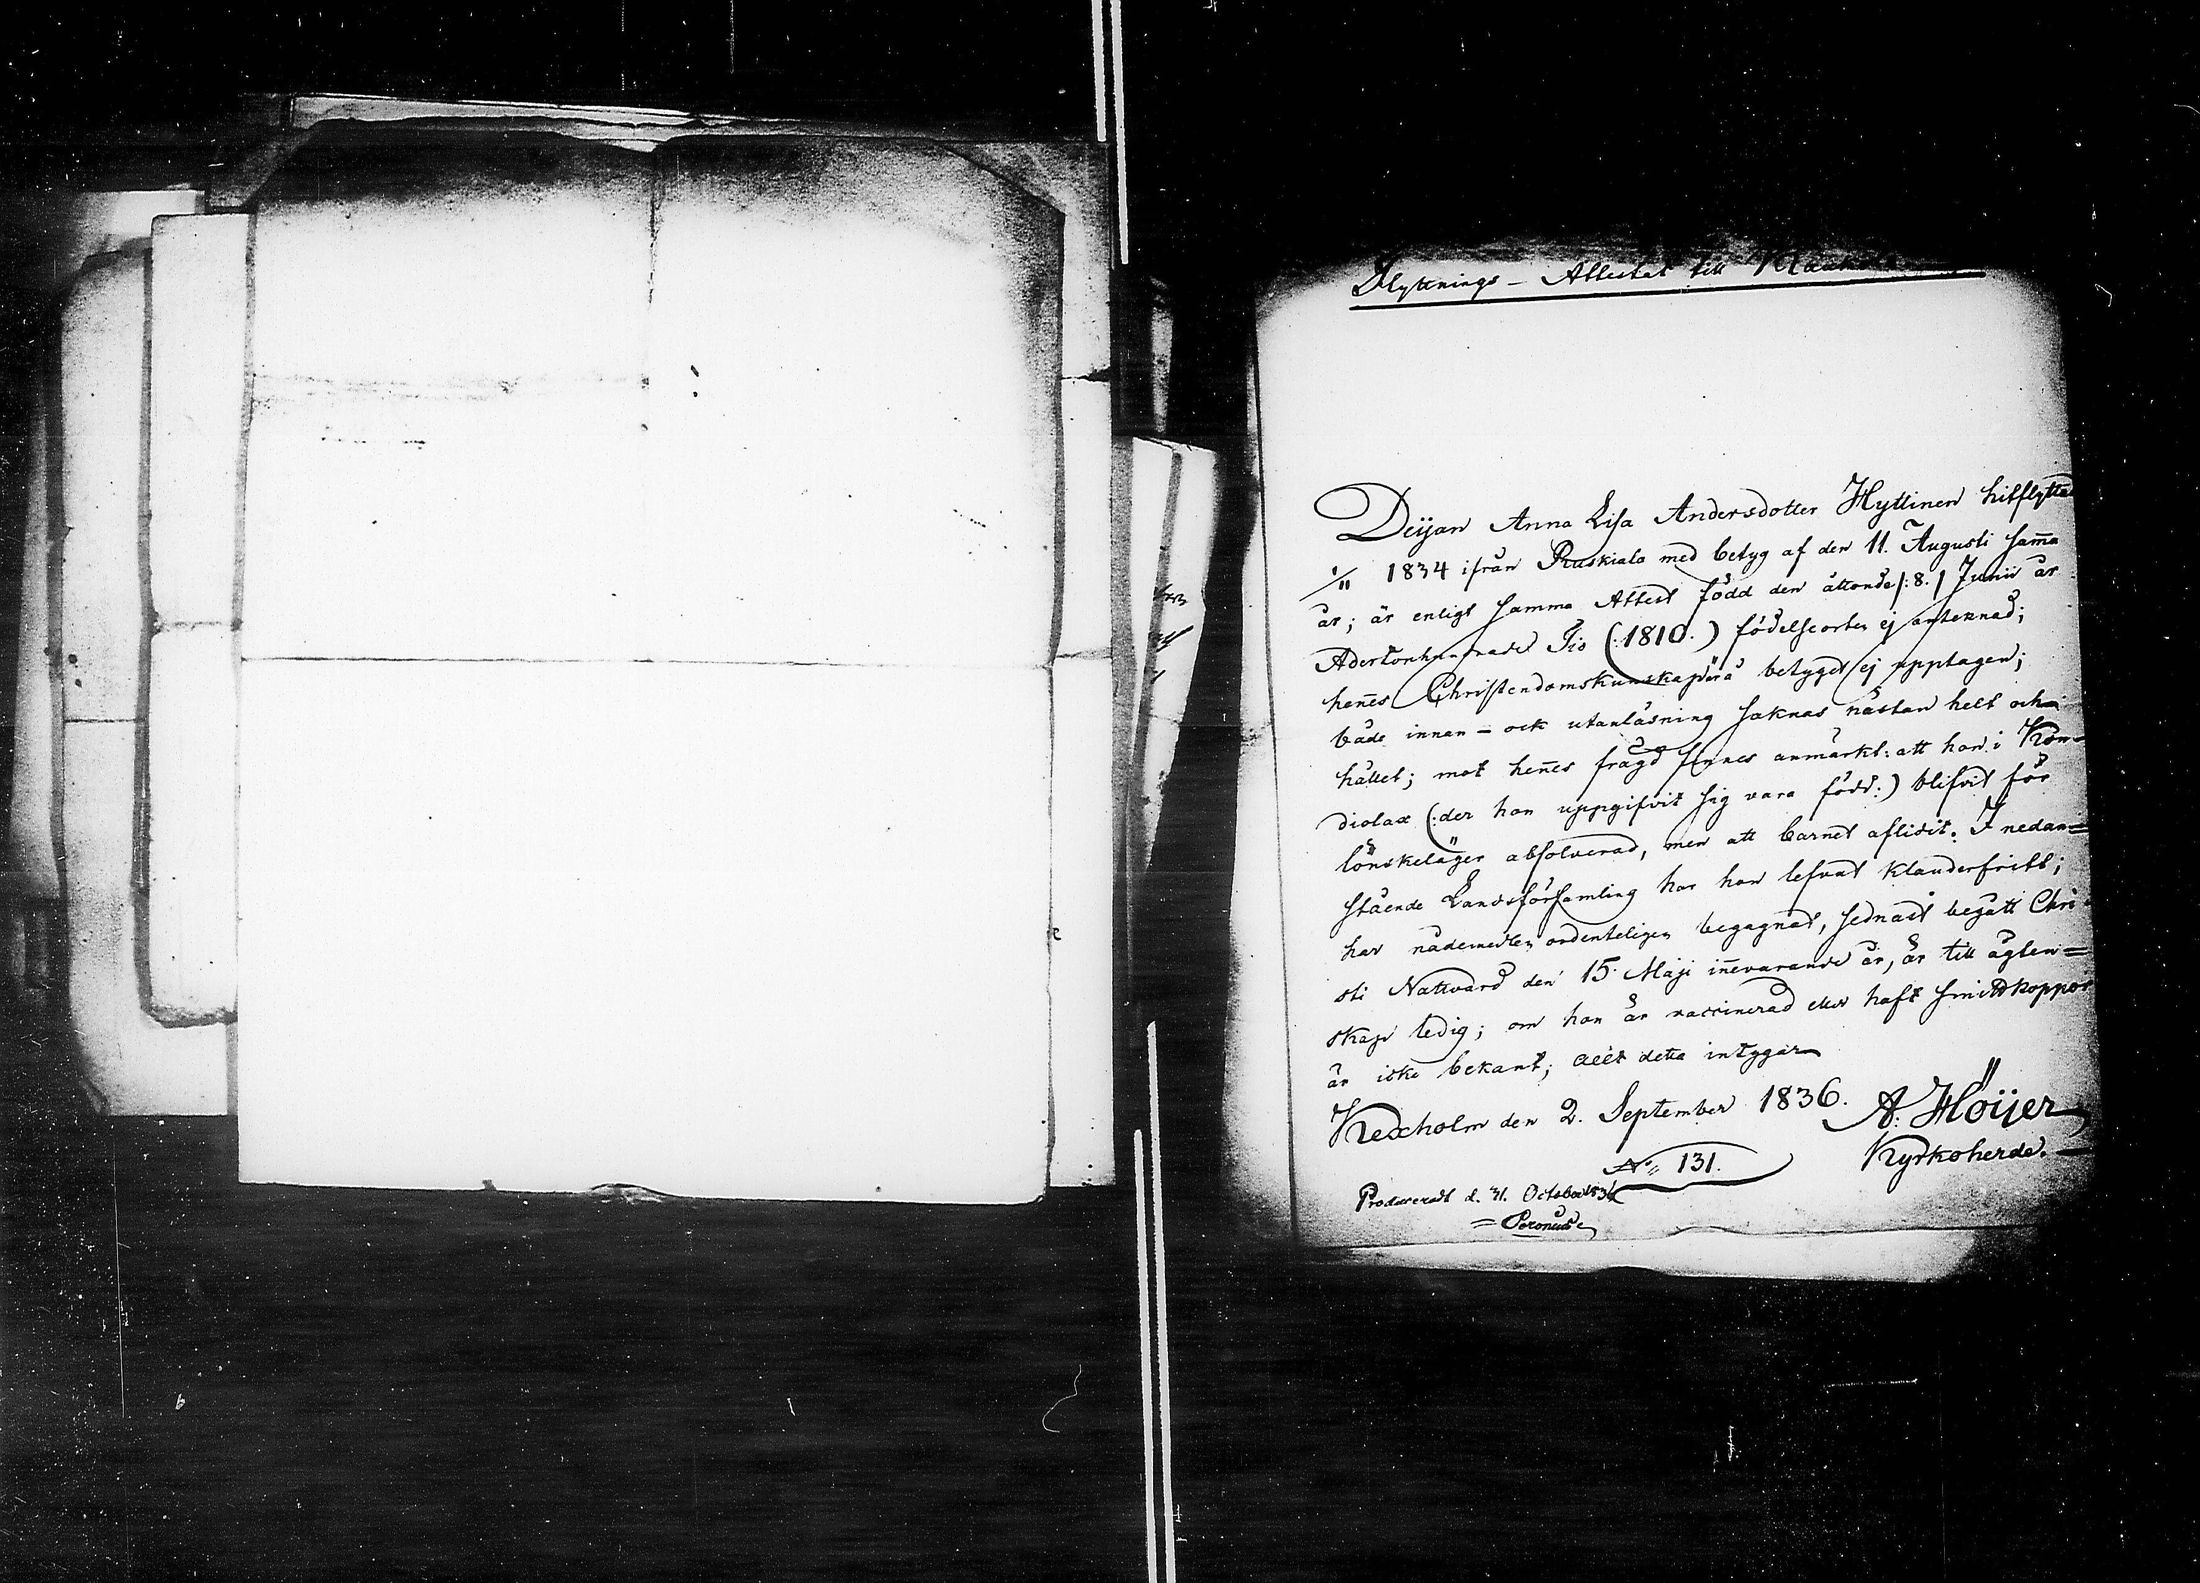 Flyttnings - Attestat till
Deijan Anna Lisa Andersdotter Hyttinen hitflytta
1834 ifrån Ruskiala med betyg af den 11. Augusti sam̄a
år; är enligt samma Attest född den åttonde /:8./ Junii år
Adertonhundrade Tio (:1810.) födelseorten ej anteknad;
hen̄es Christendomskunskap i betyget ej upptagen;
både innan- ock utanläsning saknas nästan helt och
hållet; mot hen̄es frägd finnes anmärkt: att hon i Kon-
diolax (:der hon uppgifvit sig vara född:) blifvit för
lönskeläger absolverad, men att barnet aflidit. I nedan=
stående Landsförsamling har hon lefvat klanderfritt;
har nådemedlen ordenteligen begagnat, sednast begått Chri-
sti Nattvard den 15. Maji in̄evarande år, är till ägten=
skap ledig; om hon är vaccinerad eller haft smittkoppor
är icke bekant; allt detta intygar
Kexholm den 2. September 1836. A. Höijer
Kyrkoherde.
N:o 131.
Produceradt d. 31. October